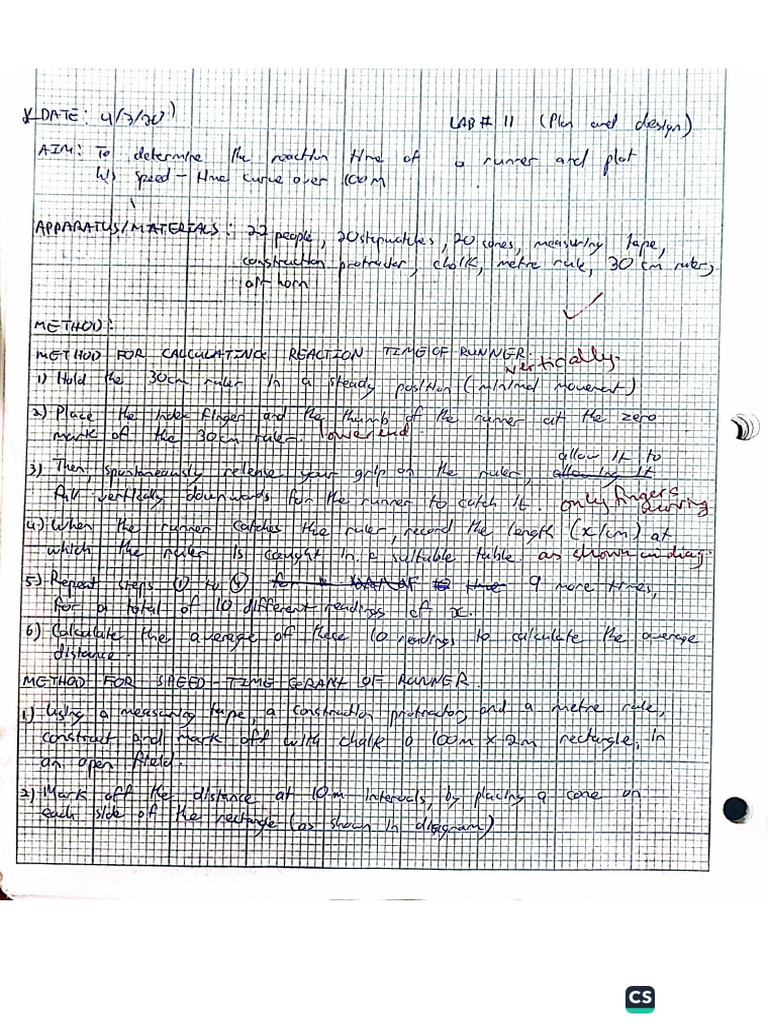 DATE: 4/3/20
LAB # 11 (Plan and design)
AIM: To determine the reaction time of a runner and plot
his speed-time curve over 100m
APPARATUS/MATERIALS: 22 people, 20 stopwatches, 20 cones, measuring tape,
construction protractor, chalk, metre rule, 30 cm ruler,
air horn
METHOD:
METHOD FOR CALCULATING REACTION TIME OF RUNNER:
vertically.
1) Hold the 30cm ruler in a steady position (minimal movement)
2) Place the index finger and the thumb of the runner at the zero
mark of the 30cm ruler. lower end.
allow it to
3) Then, spontaneously release your grip on the ruler, allowing it
fall vertically downwards for the runner to catch it. only fingers
4) When the runner catches the ruler, record the length (x/cm) at
which the ruler is caught in a suitable table. as shown in diag.
5) Repeat steps ① to ④ for 9 more times,
for a total of 10 different readings of x.
6) Calculate the average of these 10 readings to calculate the average
distance.
METHOD FOR SPEED-TIME GRAPH OF RUNNER.
1) Using a measuring tape, a construction protractor, and a metre rule,
construct and mark off with chalk a 100m x 2m rectangle, in
an open field.
2) Mark off the distance at 10m intervals, by placing a cone on
each side of the rectangle (as shown in diagram)
CS